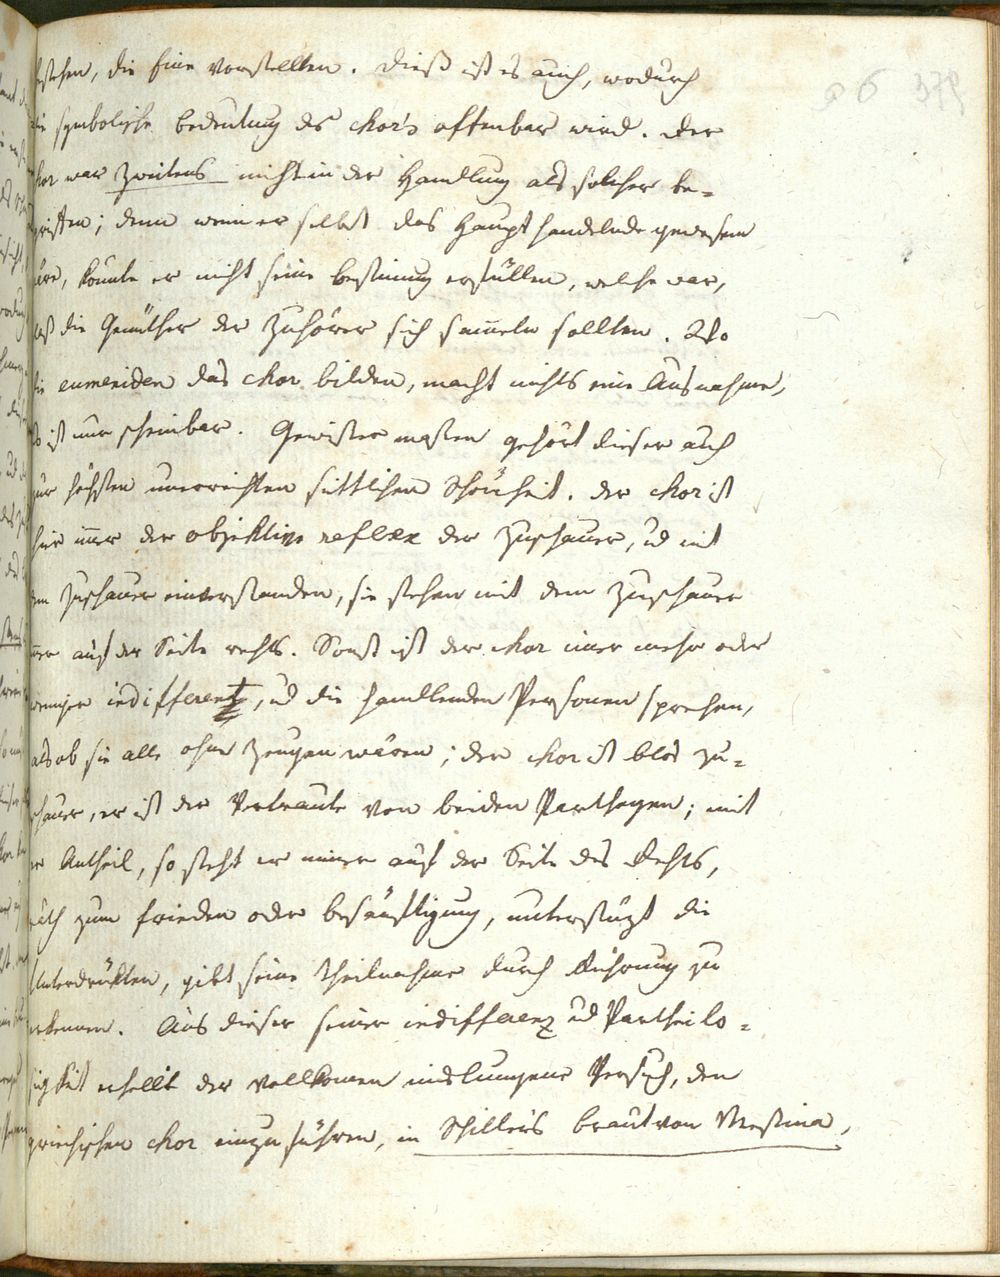 bestehen, die Eine vorstellten. Dieß ist es auch, wodurch
die symbolische Bedeutung des Chor's offenbar wird. Der
Chor war zweitens nicht in der Handlung als solcher be-
griffen; denn wenn er selbst das Haupthandelnde gewesen
wäre, konnte er nicht seine Bestimung erfüllen, welche war,
daß die Gemüther der Zuhörer sich sam̄eln sollten. Wo
die Eumeniden das Chor bilden, macht nichts eine Ausnahme,
es ist nur scheinbar. Gewisser massen gehört dieser auch
zur höchsten unerreichten sittlichen Schönheit. Der Chor ist
hier im̄er der objektive reflex der Zuschauer, ud mit
dem Zuschauer einverstanden, sie stehen mit dem Zuschauer
im̄er auf der Seite rechts. Sonst ist der Chor im̄er mehr oder
weniger indifferent, ud die handlenden Personen sprechen,
als ob sie alle ohne Zeugen wären; der Chor ist blos Zu-
schauer, er ist der Vertraute von beiden Partheyen; mit
er Antheil, so steht er im̄er auf der Seite des Rechts,
räth zum Frieden oder Besänftigung, unterstüzt die
Unterdrükten, gibt seine Theilnahme durch Rührung zu
erkennen. Aus dieser seiner indifferenz ud Partheilo-
sigkeit erhellt der vollkomen mislungene Versuch, den
griechischen Chor einzuführen, in Schiller's Braut von Messina,